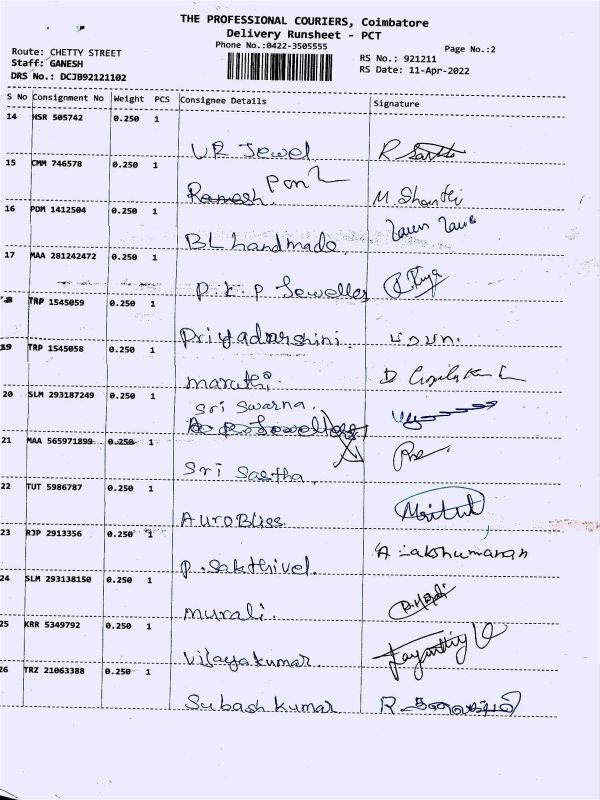 THE PROFESSIONAL COURIERS, Coimbatore
Delivery Runsheet - PCT
Phone No.:0422-3505555
Page No.:2
Route: CHETTY STREET
Staff: GANESH
DRS No.: DCJB92121102
RS No.: 921211
RS Date: 11-Apr-2022
S No Consignment No Weight PCS Consignee Details Signature
14 HSR 505742 0.250 1
UR Jewel R
15 CMM 746578 0.250 1
Ramesh. M. Shanthi
16 PDM 1412504 0.250 1
BL handmade.
17 MAA 281242472 0.250 1
P.K.P Jewellers R. Priya
TRP 1545059 0.250 1
Priyadarshini.
19 TRP 1545058 0.250 1
maruthi. D
20 SLM 293187249 0.250 1
Sri Swarna.
Jewellers
21 MAA 565971899 0.250 1
Sri Sastha.
22 TUT 5986787 0.250 1
AuroBliss.
23 RJP 2913356 0.250 1
P. Sakthivel. A Lakshumanan
24 SLM 293138150 0.250 1
murali.
25 KRR 5349792 0.250 1
Vijayakumar
26 TRZ 21063388 0.250 1
Subash kumar R